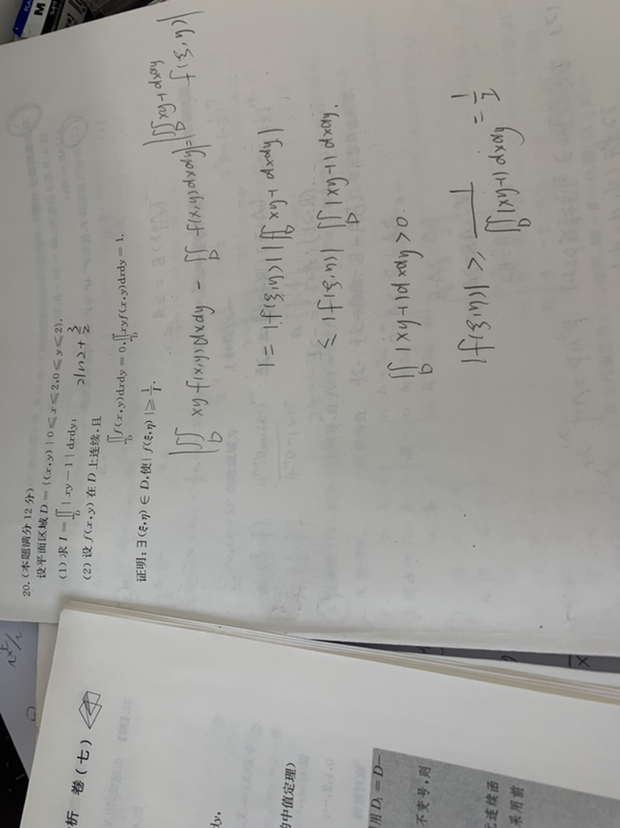 20.(本题满分 12 分)
设平面区域 D = {(x,y) | 0 ≤ x ≤ 2, 0 ≤ y ≤ 2}.
(1) 求 I = ∬_D | xy − 1 | dxdy; 2ln2+3/2
(2) 设 f(x,y) 在 D 上连续,且
∬_D f(x,y)dxdy = 0, ∬_D xyf(x,y)dxdy = 1.
证明:∃(ξ,η) ∈ D,使| f(ξ,η) | ≥ 1/I.
|∬_D xyf(x,y)dxdy − ∬_D f(x,y)dxdy| = |∬_D xy-1 dxdy f(ξ,η)|
1 = |f(ξ,η)| |∬_D xy-1 dxdy|
≤ |f(ξ,η)| ∬_D |xy-1| dxdy.
∬_D |xy-1| dxdy > 0.
|f(ξ,η)| ≥ 1/∬_D |xy-1| dxdy = 1/I
析 卷(七)
dy,
的中值定理)
用 D₁ = D−
不变号,则
连续函
采用前